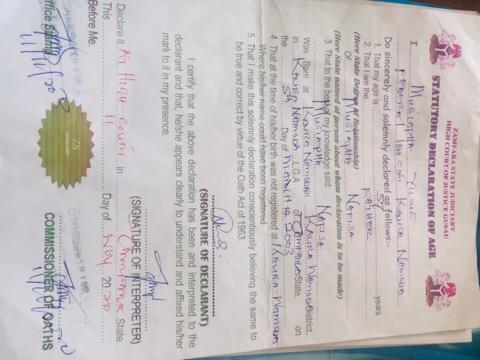 ZAMFARA STATE JUDICIARY
HIGH COURT OF JUSTICE GUSAU
STATUTORY DECLARATION OF AGE
I Mustapha Yusuf
Federal Low cost Kaura Namoda
Do sincerely and solemnly declared as follows:-
1. That my age is 54 years
2. That I am the FATHER
(Here State Degree of Relationship)
Of Mustapha Nafisa
(Here State named of person about whom declaration is to be made)
3. That to the best of my knowledge said:
Mustapha Nafisa
Was Born at Kaura Namoda Kaura Namoda District,
in Kaura Namoda L.G.A of Zamfara State on
the Day of March 2003
4. That at the time of his/her birth was not registered at Kaura Namoda
Where his/her name could have been registered
5. That I make this solemnly declaration conscientiously believing the same to
be true and correct by virtue of the Oath Act of 1963
(SIGNATURE OF DECLARANT)
I certify that the above declaration has been and interpreted to the
declarant and that, he/she appears clearly to understand and affixed his/her
mark to it in my presence.
(SIGNATURE OF INTERPRETER)
Declare it At High Court in Zamfara State
This 11 Day of Nov 2020
Before Me.
Office Stamp
COMMISSIONER OF OATHS